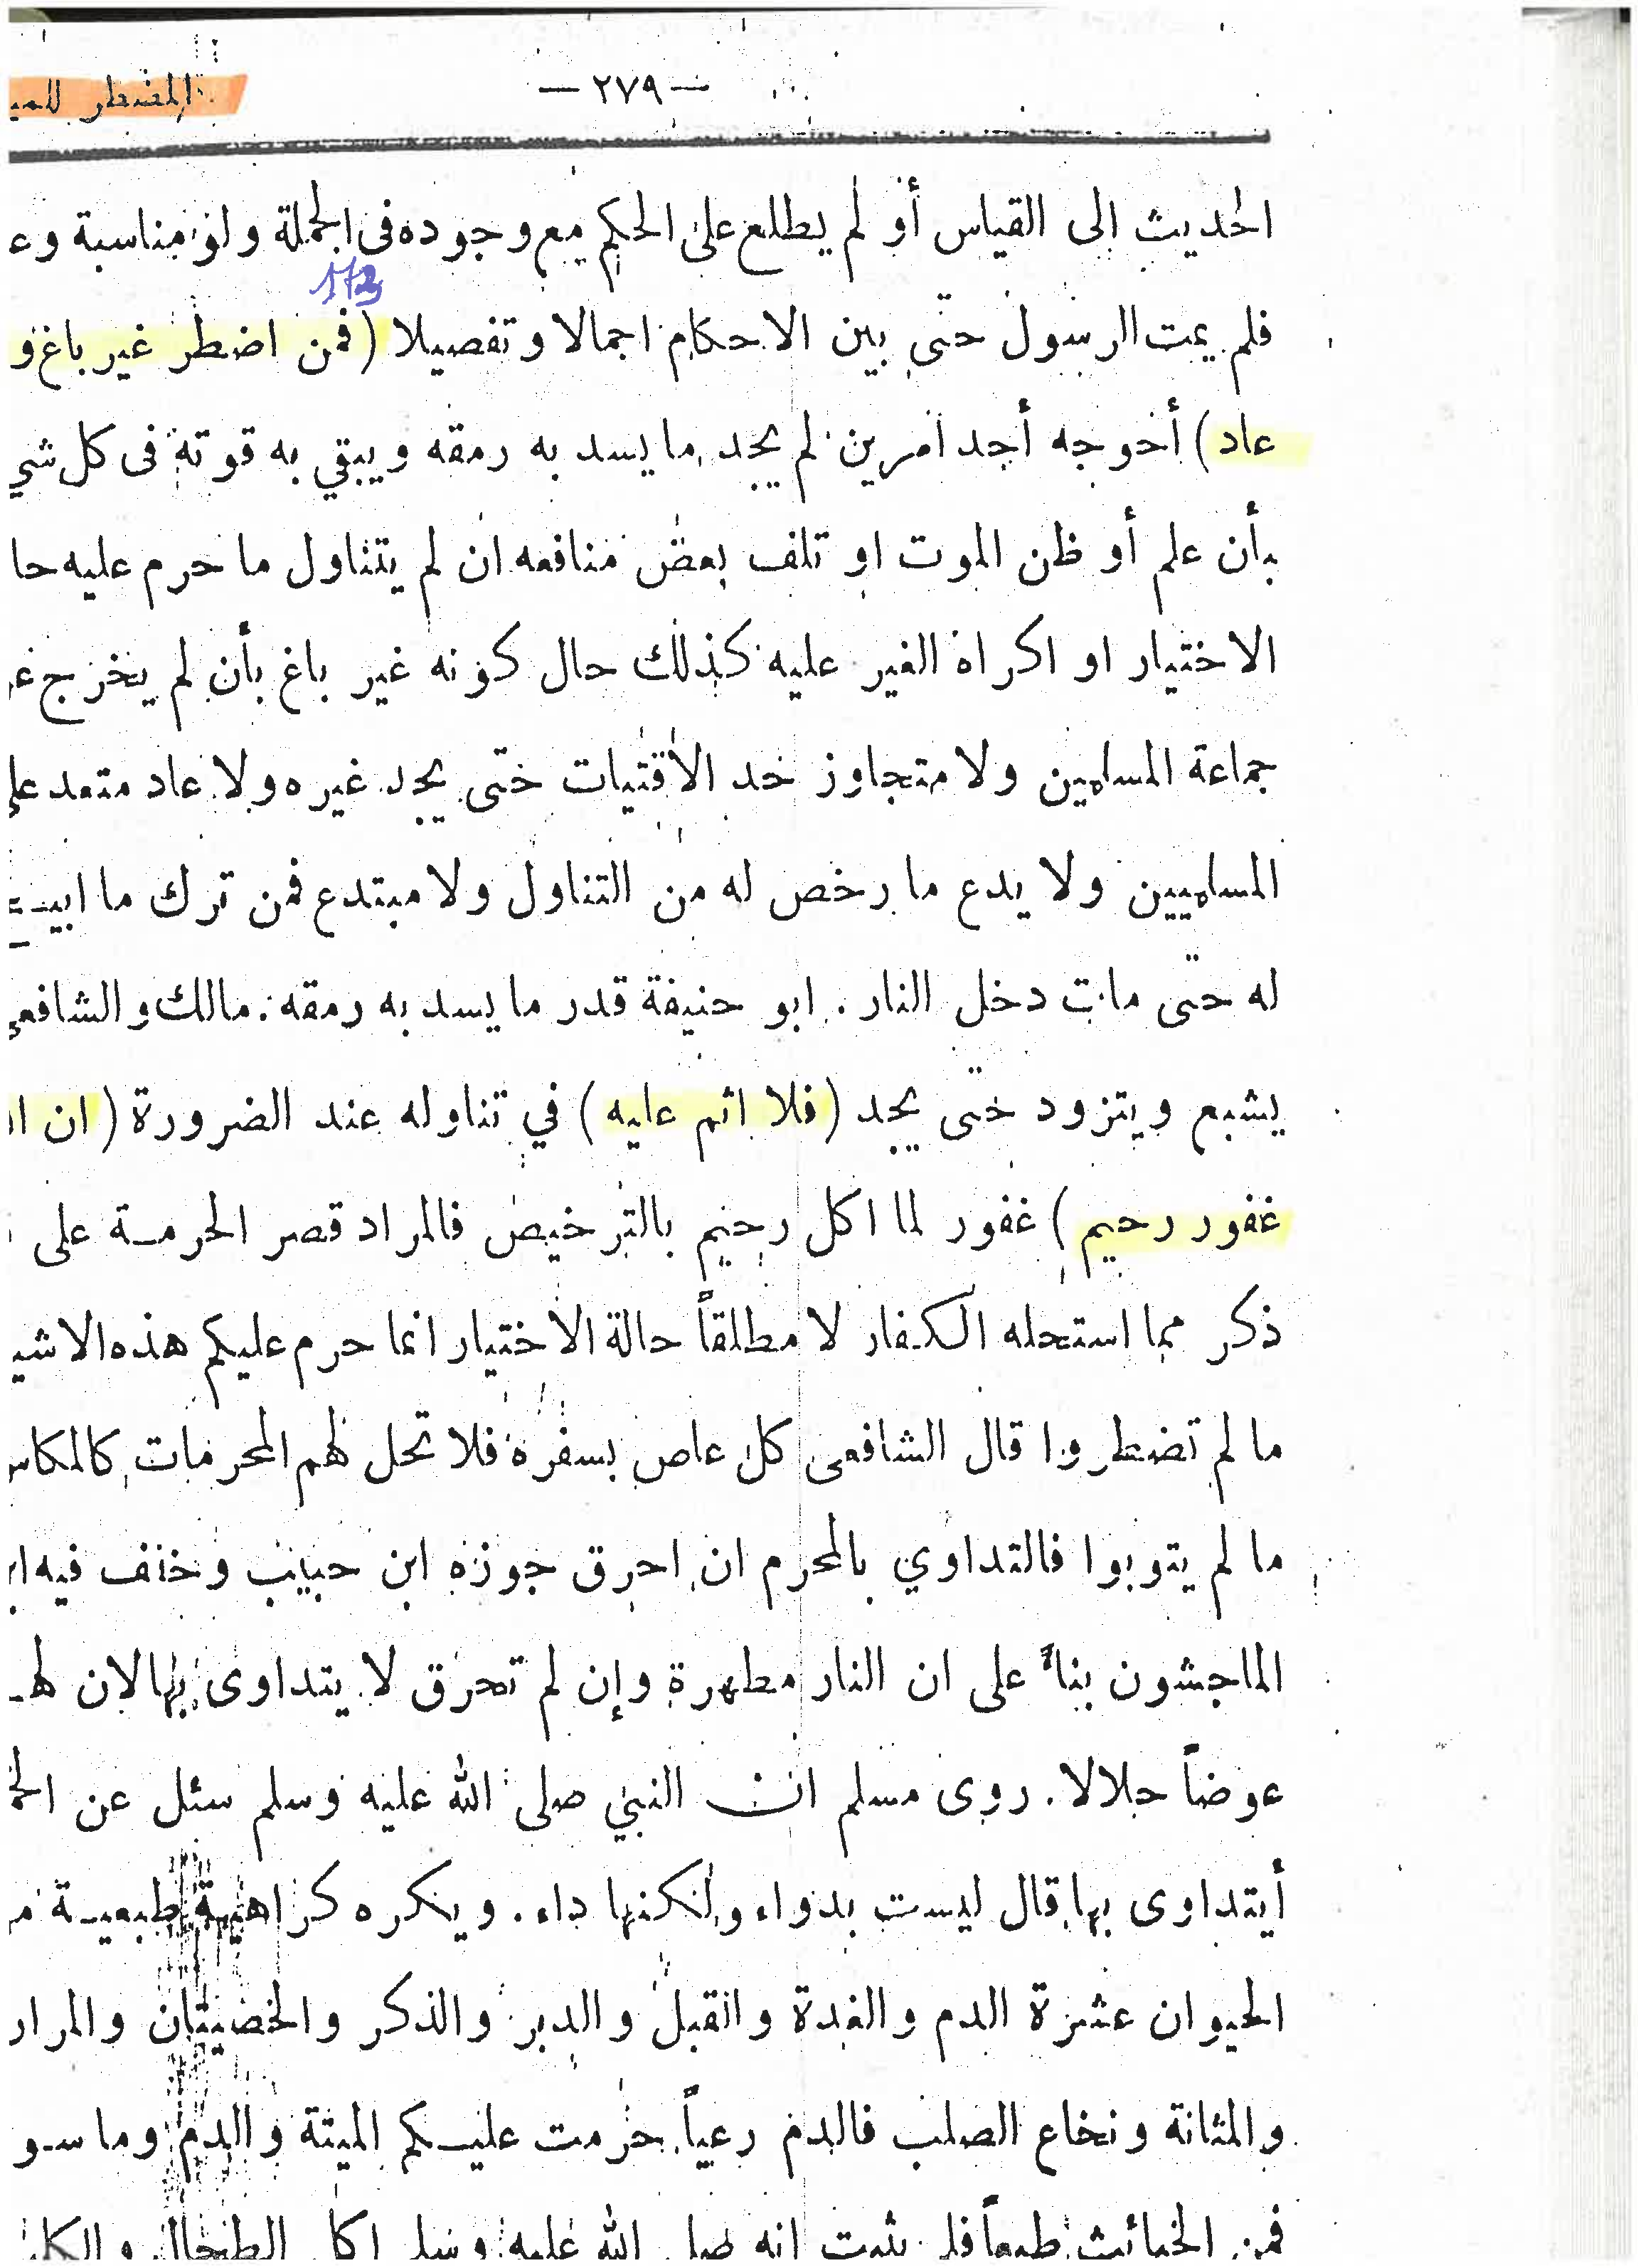 المضطر للمي
— ٢٧٩ —
الحديث إلى القياس أو لم يطلع على الحكم مع وجوده فى الجملة ولو مناسبة وع
173
فلم يمت الرسول حتى بين الاحكام اجمالا وتفصيلا (فمن اضطر غير باغ و
عاد) أحوجه أحد أمرين لم يجد ما يسد به رمقه ويبقي به قوته فى كل شي
بأن علم أو ظن الموت او تلف بعض منافعه ان لم يتناول ما حرم عليه حا
الاختيار او اكراه الغير عليه كذلك حال كونه غير باغ بأن لم يخرج
جماعة المسلمين ولا متجاوز حد الاقتيات حتى يجد غيره ولا عاد متعد على
المسلميين ولا يدع ما رخص له من التناول ولا مبتدع فمن ترك ما ابيـ
له حتى مات دخل النار . ابو حنيفة قدر ما يسد به رمقه . مالك والشافعي
يشبع ويتزود حتى يجد (فلا اثم عليه) في تناوله عند الضرورة (ان ا
غفور رحيم) غفور لما اكل رحيم بالترخيص فالمراد قصر الحرمـة على
ذكر مما استحله الكفار لا مطلقاً حالة الاختيار انما حرم عليكم هذه الاشيـ
ما لم تضطروا قال الشافعى كل عاص بسفره فلا تحل لهم المحرمات كالمكاس
ما لم يتوبوا فالتداوي بالمحرم ان احرق جوزه ابن حبيب وخفف فيه ابن
الماجشون بناءً على ان النار مطهرة وإن لم تحرق لا يتداوى بها لان لهـ
عوضاً حلالا . روى مسلم ان النبي صلى الله عليه وسلم سئل عن الخـ
أيتداوى بها قال ليست بدواء ولكنها داء . ويكره كراهية طبعيـة مـ
الحيوان عشرة الدم والغدة والقبل والدبر والذكر والخصيتان والمرار
والمثانة ونخاع الصلب فالدم رعياً حرمت عليـكم الميتة والدم وما سـو
فمن الخبائث طبعاً فلم يثبت انه صلى الله عليه وسلم اكل الطحال والكلـ